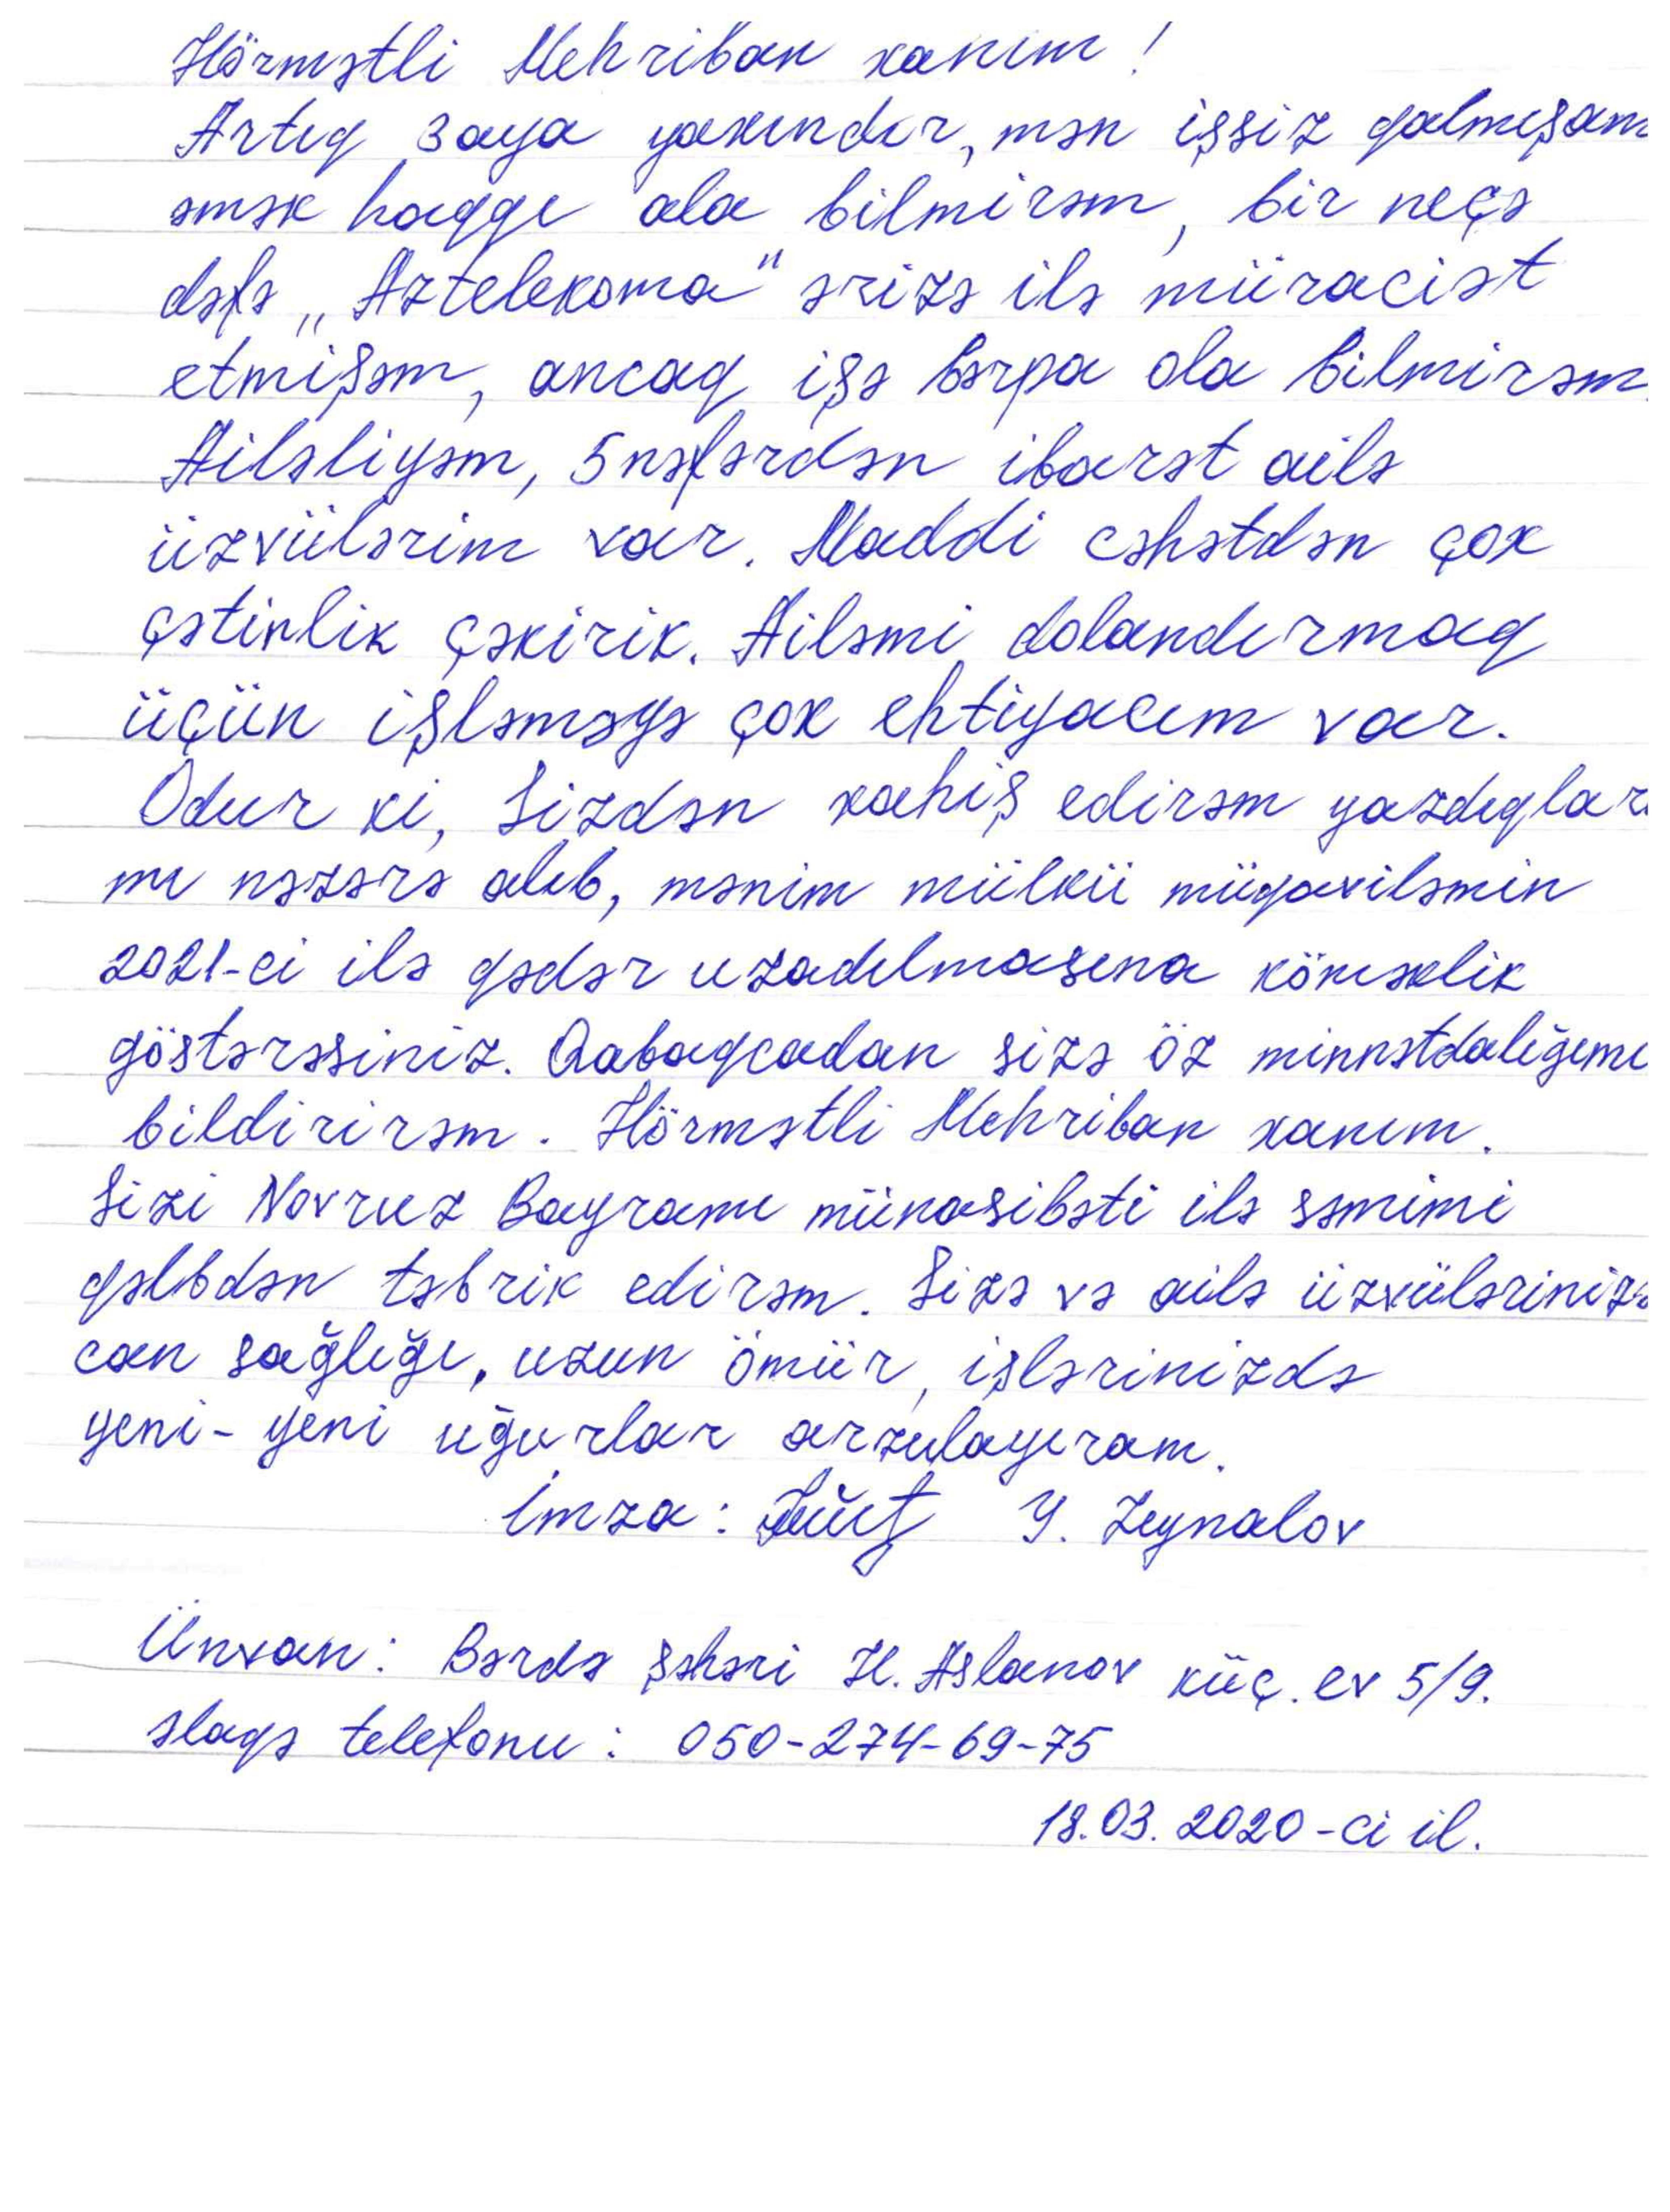 Hörmətli Mehriban xanım!
Artıq 3 aya yaxındır, mən işsiz qalmışam
əmək haqqı ala bilmirəm, bir neçə
dəfə „Aztelekoma" ərizə ilə müraciət
etmişəm, ancaq işə bərpa ola bilmirəm.
Ailəliyəm, 5 nəfərdən ibarət ailə
üzvülərim var. Maddi cəhətdən çox
çətinlik çəkirik. Ailəmi dolandırmaq
üçün işləməyə çox ehtiyacım var.
Odur ki, Sizdən xahiş edirəm yazdıqları
mı nəzərə alıb, mənim mülkü müqaviləmin
2021-ci ilə qədər uzadılmasına köməklik
göstərəsiniz. Qabaqcadan sizə öz minnətdalığımı
bildirirəm. Hörmətli Mehriban xanım.
Sizi Novruz Bayramı münasibəti ilə səmimi
qəlbdən təbrik edirəm. Sizə və ailə üzvülərinizə
can sağlığı, uzun ömür, işlərinizdə
yeni-yeni uğurlar arzulayıram.
İmza: Y. Zeynalov
Ünvan: Bərdə şəhəri H. Aslanov küç. ev 5/9.
əlaqə telefonu: 050-274-69-75
18.03.2020-ci il.